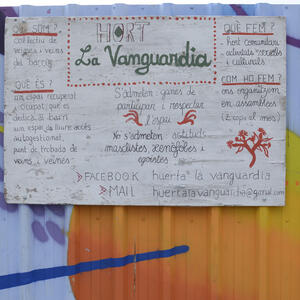 QUI SOM?
col·lectiu de
veïnes i veïns
del barri
QUÈ ÉS?
un espai recuperat
i ocupat que es
dedica al barri
un espai de lliure accés
autogestionat,
punt de trobada de
veïns i veïnes
HORT
La Vanguardia
S'admeten: ganes de
participar i respectar
l'espai
No s'admeten actituds
masclistes, xenòfobes i
egoistes
QUÈ FEM?
- hort comunitari
- activitats socials
i culturals
COM HO FEM?
ens organitzem
en assemblees
(2 cops al mes)
>FACEBOOK huerta la vanguardia
>MAIL huertalavanguardia@gmail.com